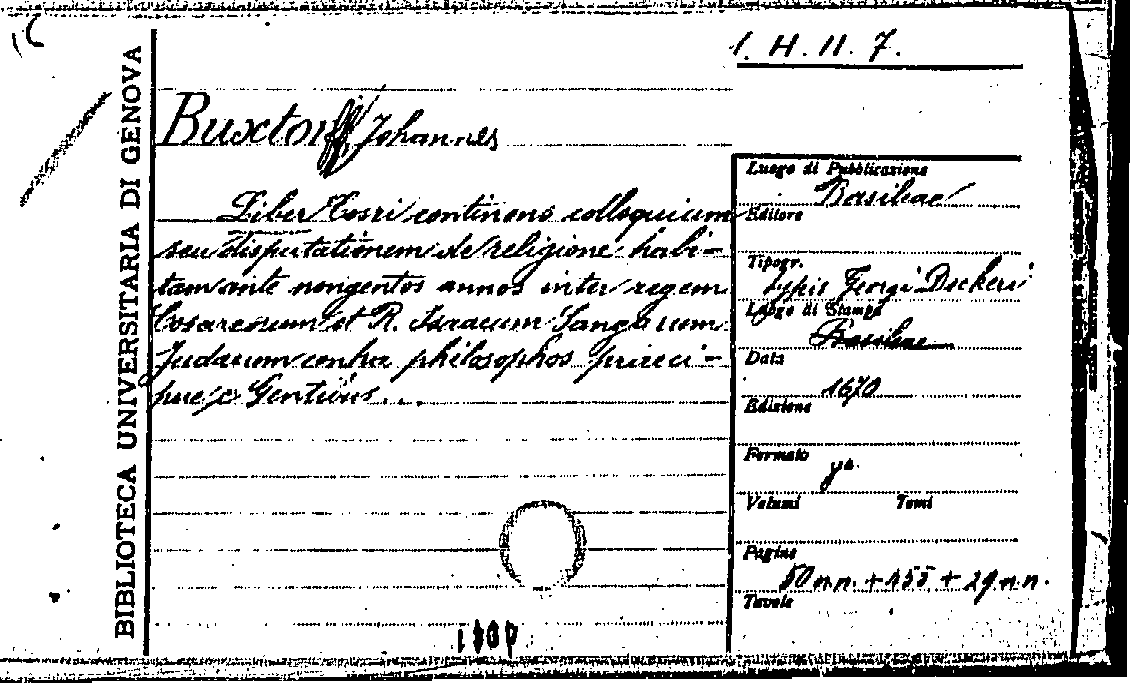 1. H. II. 7.
BIBLIOTECA UNIVERSITARIA DI GENOVA
Buxtorff Johannes
Liber Cosri continens colloquium
seu disputationem de religione habi-
tam ante nongentos annos inter regem
Cosareorum et R. Isaacum Sangarum
Judaeum contra philosophos praeci-
pue e Gentibus...
Luogo di Pubblicazione
Basileae
Editore
Tipogr.
typis Georgi Deckeri
Luogo di Stampa
Basileae
Data
1670
Edizione
Formato
Volumi Tomi
Pagine
50 n.n. + 455 + 29 n.n.
Tavole